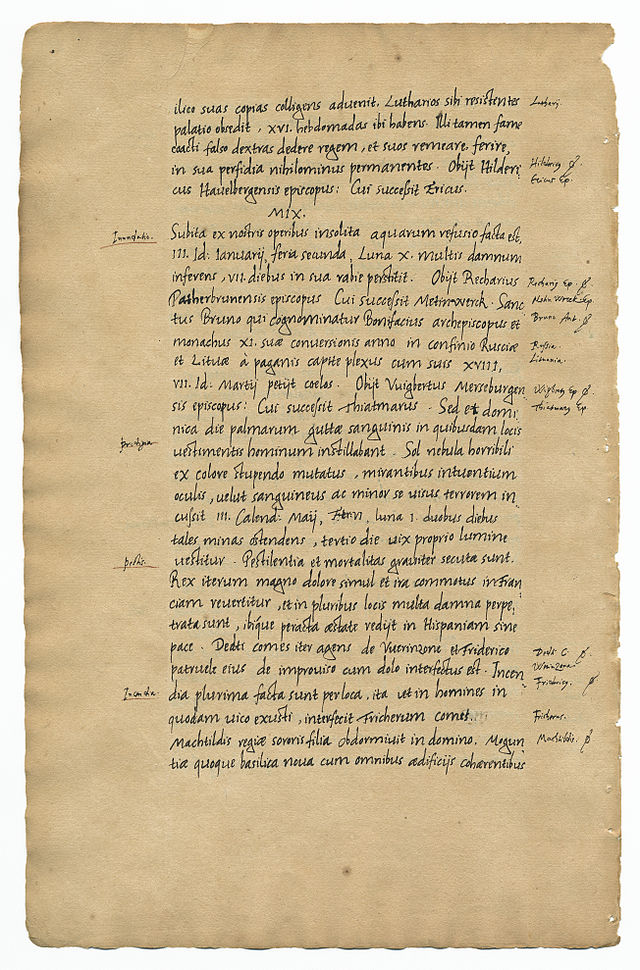 ilico suas copias colligens advenit. Lutharios sibi resistentes
palatio obsedit, XVI. hebdomadas ibi habens. Illi tamen fame
coacti falso dextras dedere regem, et suos remeare, ferire,
in sua perfidia nihilominus permanentes. Obijt Hilderi
cus Hauelbergensis episcopus: Cui successit Ericus.
MIX.
Subita ex nostris operibus insolita aquarum refusio facta est,
III. Id: Ianuarij, feria secunda, Luna X. multis damnum
inferens, VII. diebus in sua rabie perstitit. Obijt Recharius
Patherbrunensis episcopus Cui successit Metinwerck. Sanc
tus Bruno qui cognominatur Bonifacius archepiscopus et
monachus XI. suæ conversionis anno in confinio Rusciæ
et Lituæ à paganis capite plexus cum suis XVIII,
VII. Id: Martij petijt coelos. Obijt Vuigbertus Merseburgen
sis episcopus: Cui successit Thiatmarus. Sed et domi,
nica die palmarum guttæ sanguinis in quibusdam locis
uestimentis hominum instillabant. Sol nebula horribili
ex colore stupendo mutatus, mirantibus intuentium
oculis, uelut sanguineus ac minor se uisus terrorem in
cussit III. Calend: Maij, luna I. duobus diebus
tales minas ostendens, tertio die uix proprio lumine
uestitur. Pestilentia et mortalitas graviter secuta sunt.
Rex iterum magno dolore simul et ira commotus in Fran
ciam revertitur, et in pluribus locis multa damna perpe,
trata sunt, ibique peracta æstate redijt in Hispaniam sine
pace. Dedti comes iter agens de Vuerinzone et Friderico
patruele eius de improuiso cum dolo interfectus est. Incen
dia plurima facta sunt per loca, ita ut in homines in
quodam uico exusti, interfecit Fricherum comet
Machtildis regiæ sororis filia obdormiuit in domino. Mogun
tiæ quoque basilica noua cum omnibus ædificijs cohærentibus
Inundatio.
Prodigia
Pestis.
Incendia.
Lutharij.
Hildricg
Ericus Ep.
Bruno
Russia
Lituania.
Thiatmarg Ep.
Dedi C.
Fridricg
Fricherus.
Machtildis.